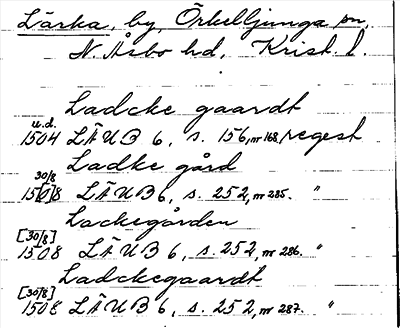 Lärka, by, Örkelljunga sn,
N. Åsbo hd, Krist. l.
Ladcke gaardt
u.d.
1504 LÄUB 6, s. 156, nr 168, regest
Ladke gård
30/8
15[0]8 LÄUB 6, s. 252, nr 285. "
Lackegården
[30/8]
1508 LÄUB 6, s. 252, nr 286. "
Ladckegaardt
[30/8]
1508 LÄUB 6, s. 252, nr 287. "